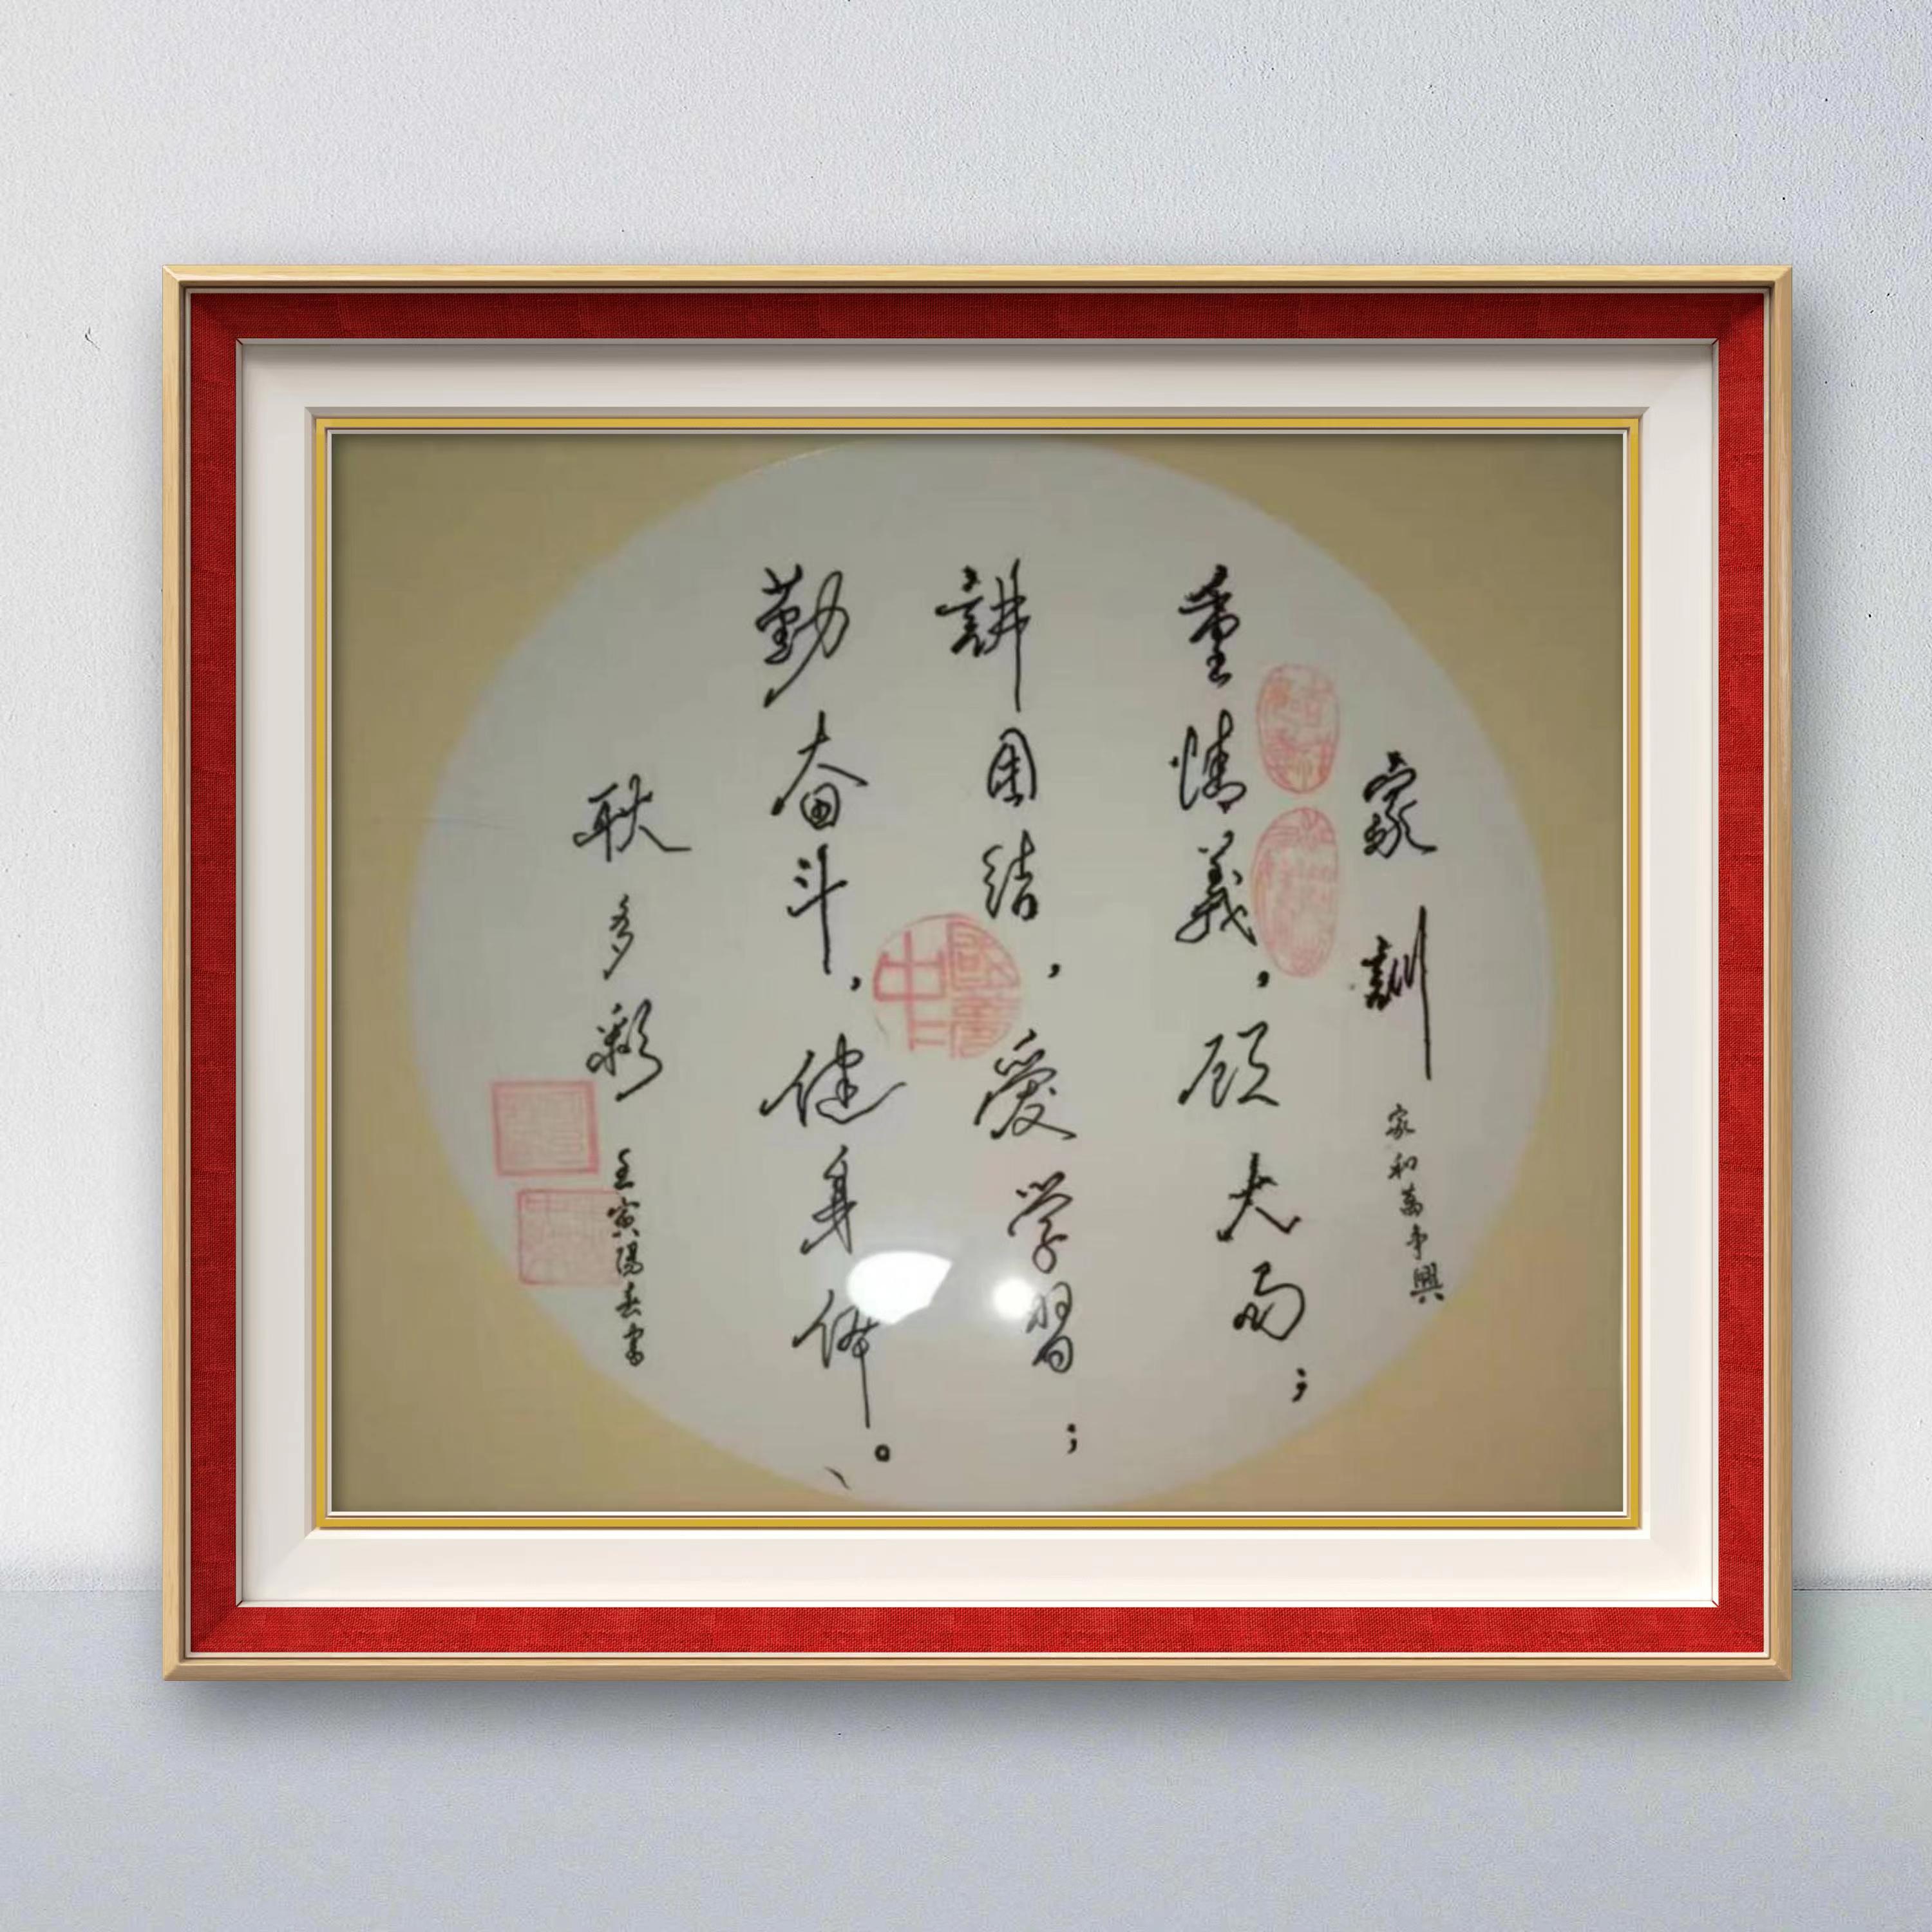 家訓
家和萬事興
重情義，顾大局；
講团结，愛学習；
勤奋斗，健身体。
耿多彩
壬寅陽春書